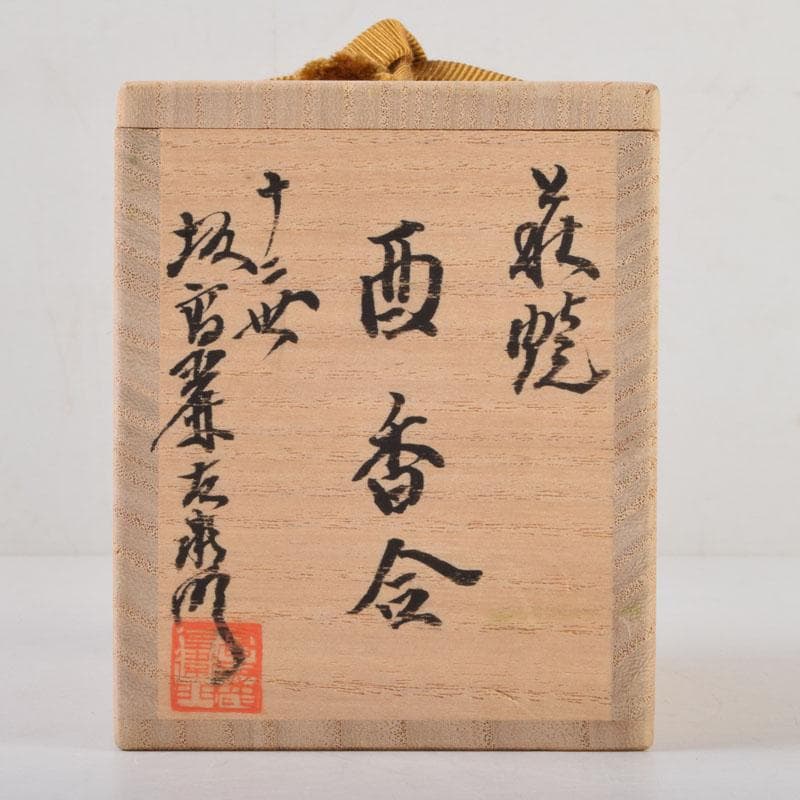 萩焼
酉香合
十二世
坂高麗左衛門